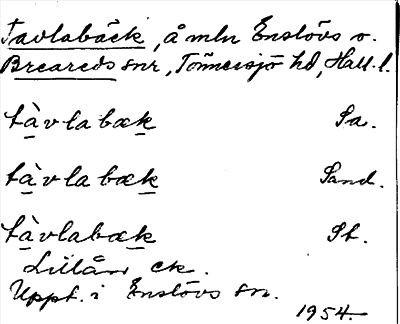 Tavlabäck, å mln Enslövs o.
Breareds snr, Tönnersjö hd, Hall. l.
tàvlabæk Sa.
tàvlabæk Sand.
tàvlabæk St.
Lillån ek.
Uppt. i Enslövs sn.
1954.